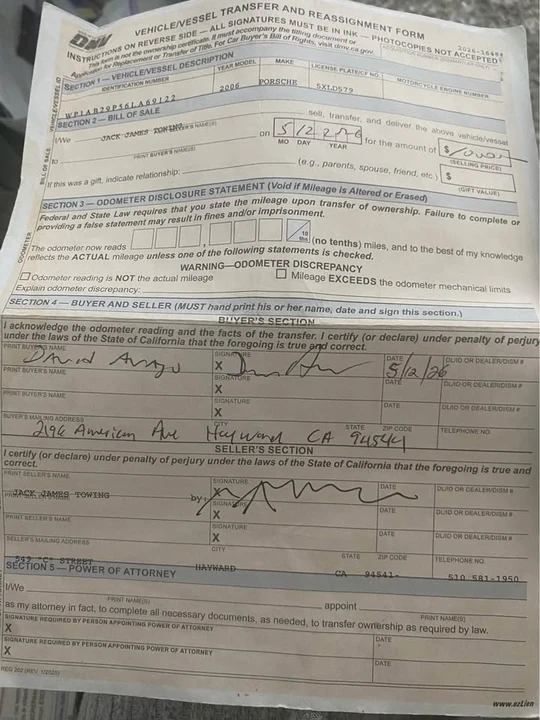 DMV
VEHICLE/VESSEL TRANSFER AND REASSIGNMENT FORM
INSTRUCTIONS ON REVERSE SIDE — ALL SIGNATURES MUST BE IN INK — PHOTOCOPIES NOT ACCEPTED
This form is not the ownership certificate. It must accompany the titling document or
Application for Replacement or Transfer of Title. For Car Buyer's Bill of Rights, visit dmv.ca.gov.
SECTION 1 — VEHICLE/VESSEL DESCRIPTION
IDENTIFICATION NUMBER YEAR MODEL MAKE LICENSE PLATE/CF NO. MOTORCYCLE ENGINE NUMBER
WP1AB29P56LA69122 2006 PORSCHE 5XLD579
VEHICLE/VESSEL ID
SECTION 2 — BILL OF SALE
I/We JACK JAMES TOWING sell, transfer, and deliver the above vehicle/vessel
to on 5 12 2026 for the amount of $
PRINT BUYER'S NAME(S) MO DAY YEAR (SELLING PRICE)
If this was a gift, indicate relationship: (e.g., parents, spouse, friend, etc.) $
(GIFT VALUE)
BILL OF SALE
SECTION 3 — ODOMETER DISCLOSURE STATEMENT (Void if Mileage is Altered or Erased)
Federal and State Law requires that you state the mileage upon transfer of ownership. Failure to complete or
providing a false statement may result in fines and/or imprisonment.
The odometer now reads (no tenths) miles, and to the best of my knowledge
reflects the ACTUAL mileage unless one of the following statements is checked.
WARNING—ODOMETER DISCREPANCY
Odometer reading is NOT the actual mileage Mileage EXCEEDS the odometer mechanical limits
Explain odometer discrepancy:
ODOMETER
SECTION 4 — BUYER AND SELLER (MUST hand print his or her name, date and sign this section.)
BUYER'S SECTION
I acknowledge the odometer reading and the facts of the transfer. I certify (or declare) under penalty of perjury
under the laws of the State of California that the foregoing is true and correct.
PRINT BUYER'S NAME SIGNATURE DATE DL/ID OR DEALER/DISM #
David X 5/12/26
PRINT BUYER'S NAME SIGNATURE DATE DL/ID OR DEALER/DISM #
X
PRINT BUYER'S NAME SIGNATURE DATE DL/ID OR DEALER/DISM #
X
BUYER'S MAILING ADDRESS CITY STATE ZIP CODE TELEPHONE NO.
American Ave Hayward CA 94544
SELLER'S SECTION
I certify (or declare) under penalty of perjury under the laws of the State of California that the foregoing is true and
correct.
PRINT SELLER'S NAME SIGNATURE DATE DL/ID OR DEALER/DISM #
JACK JAMES TOWING by: X
PRINT SELLER'S NAME SIGNATURE DATE DL/ID OR DEALER/DISM #
X
PRINT SELLER'S NAME SIGNATURE DATE DL/ID OR DEALER/DISM #
X
SELLER'S MAILING ADDRESS CITY STATE ZIP CODE TELEPHONE NO.
STREET HAYWARD CA 94541- 510 581-1950
SECTION 5 — POWER OF ATTORNEY
I/We appoint
PRINT NAME(S) PRINT NAME(S)
as my attorney in fact, to complete all necessary documents, as needed, to transfer ownership as required by law.
SIGNATURE REQUIRED BY PERSON APPOINTING POWER OF ATTORNEY DATE
X
SIGNATURE REQUIRED BY PERSON APPOINTING POWER OF ATTORNEY DATE
X
REG 262 (REV. 1/2020)
www.ezLien